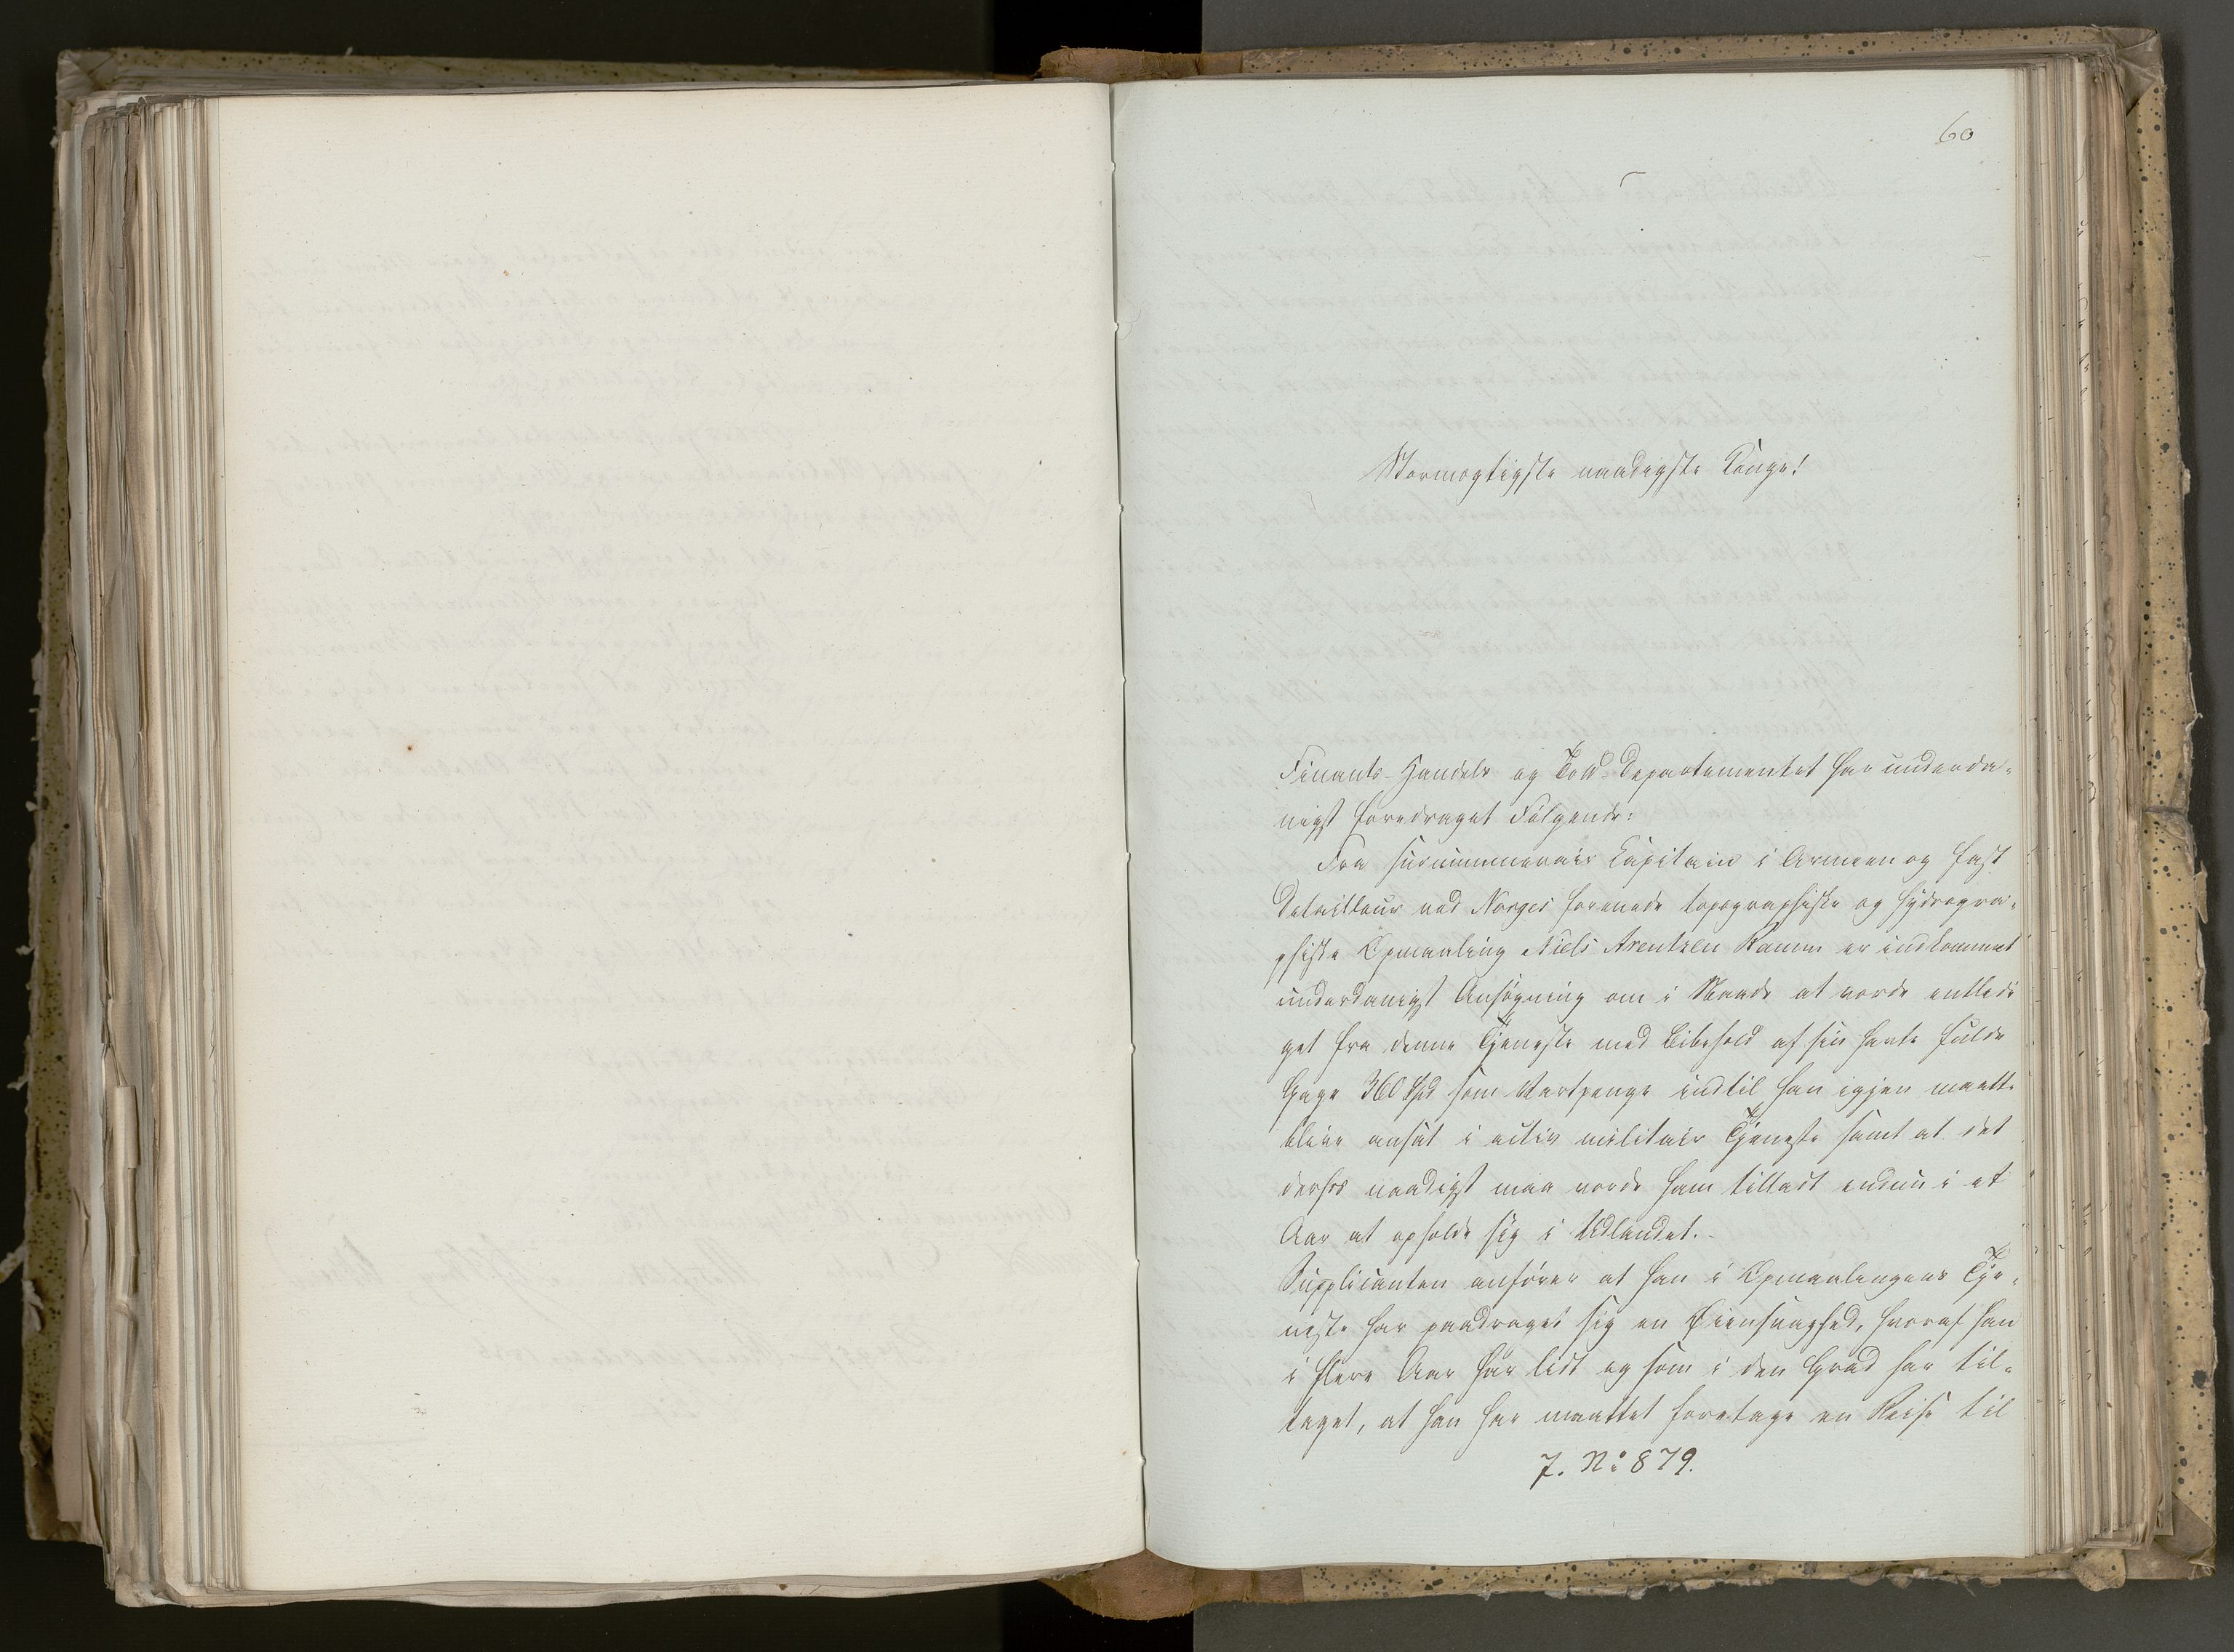 60
Stormægtigste naadigste Konge!
Finants-Handels og Told-Departementet har underda-
nigst foredraget Følgende:
Fra surnummerair Capitain i Armeen og fast
Detailleur ved Norges forenede topographiske og hydrogra-
phiske Opmaaling Niels Arentzen Ramm er indkommet
underdanigst Ansøgning om i Naade at vorde entledi
get fra denne Tjeneste med Bibehold af sin havte fulde
Gage 360 Spd som Vartpenge indtil han igjen maatte
blive ansat i activ militair Tjeneste samt at det
derhos naadigst maa vorde ham tilladt endnu i et
Aar at opholde sig i Udlandet.-
Supplicanten anfører at han i Opmaalingens Tje-
neste har paadraget sig en Øiensvaghed, hvoraf han
i flere Aar har lidt og som i den Grad har til-
taget, at han har maattet foretage en Reise til
7. No 879.